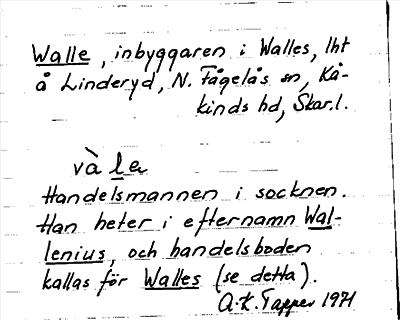 Walle, inbyggaren i Walles, lht
å Linderyd, N. Fågelås sn, Kå-
kinds hd, Skar.l.
và la
Handelsmannen i socknen.
Han heter i efternamn Wal-
lenius, och handelsboden
kallas för Walles (se detta).
A.K. Tapper 1971